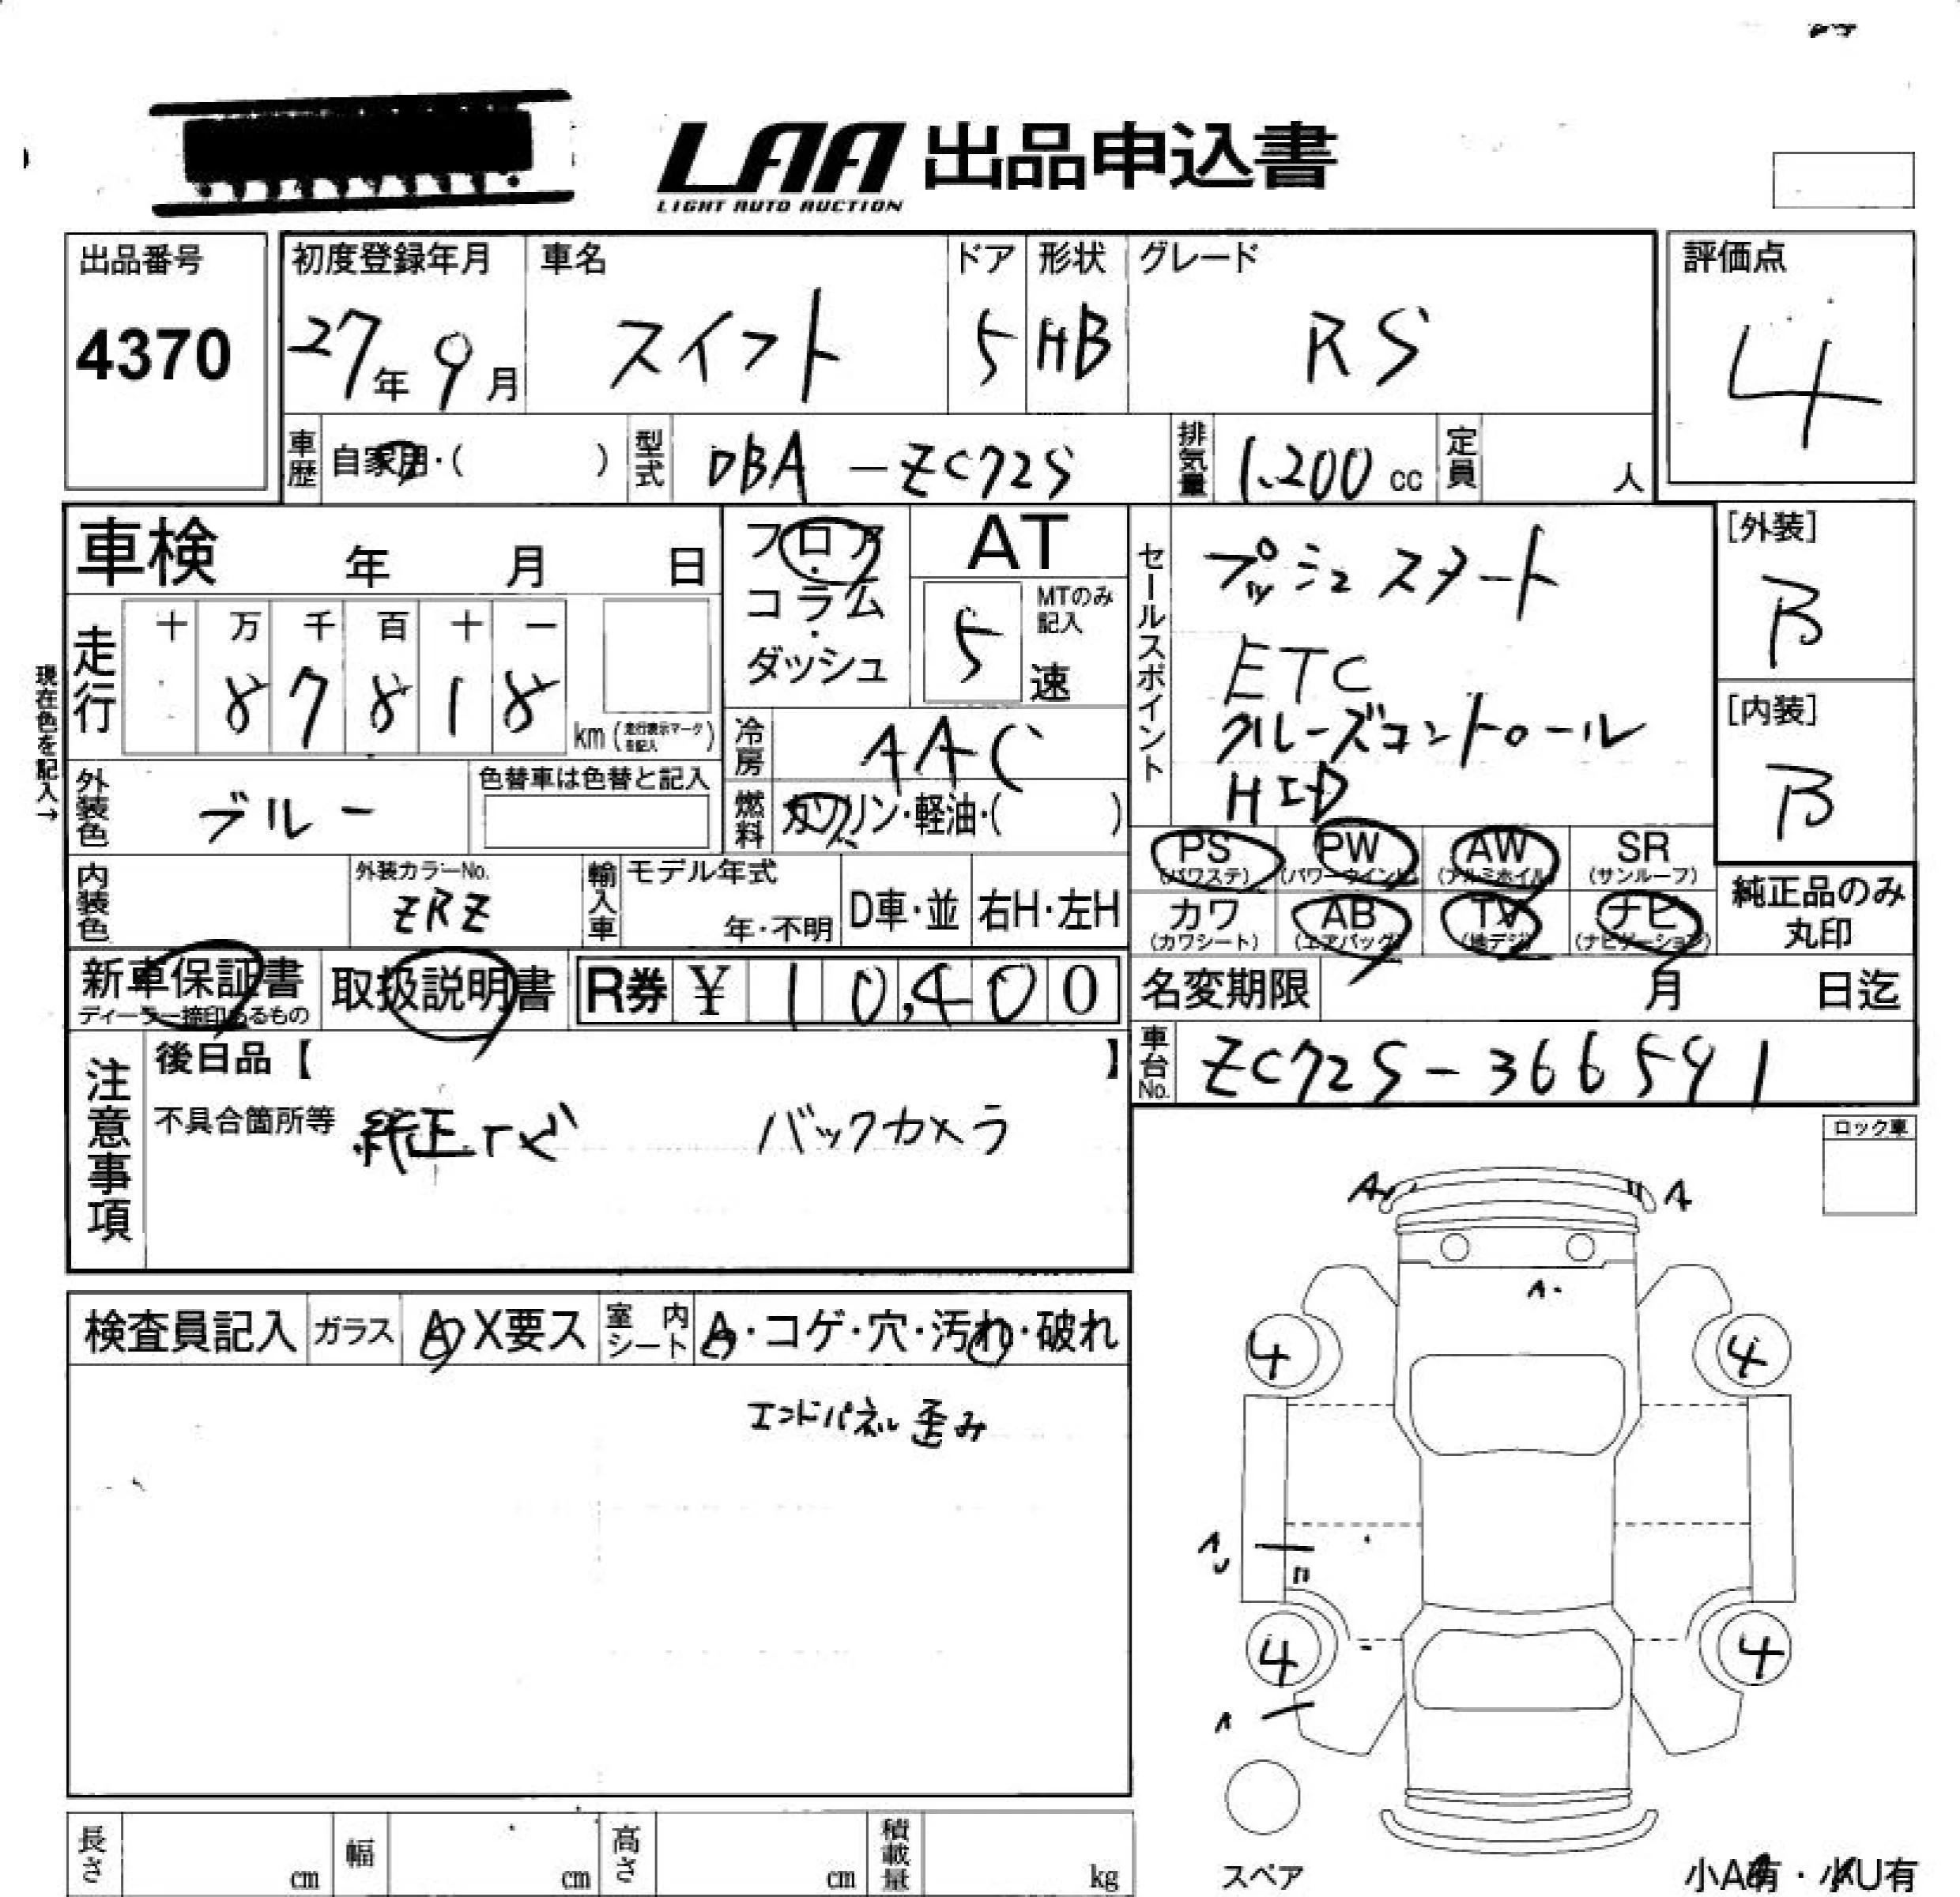 LAA 出品申込書
LIGHT AUTO AUCTION
出品番号
4370
初度登録年月
27年 9月
車名
スイフト
ドア
5
形状
HB
グレード
RS
評価点
4
車歴
自家用・( )
型式
DBA-ZC72S
排気量
1.200 cc
定員
人
車検 年 月 日
フロア・コラム・ダッシュ
AT
5 速
MTのみ記入
セールスポイント
プッシュスタート
ETC
クルーズコントロール
HID
[外装]
B
[内装]
B
現在色を記入→
走行
十 万 千 百 十 一
8 7 8 1 8
km (走行表示マークを記入)
冷房
AAC
外装色
ブルー
色替車は色替と記入
燃料
ガソリン・軽油・( )
PS
(パワステ)
PW
(パワーウインド)
AW
(アルミホイル)
SR
(サンルーフ)
内装色
外装カラーNo.
ZRZ
輸入車
モデル年式
年・不明
D車・並
右H・左H
カワ
(カワシート)
AB
(エアバッグ)
TV
(地デジ)
ナビ
(ナビゲーション)
純正品のみ
丸印
新車保証書
ディーラー捺印あるもの
取扱説明書
R券 ¥ 10,400
名変期限 月 日迄
車台No.
ZC72S-366591
注意事項
後日品【 】
不具合箇所等
純正ナビ バックカメラ
ロック車
A A
A
検査員記入
ガラス
A X要ス
室内シート
A・コゲ・穴・汚れ・破れ
エンドパネル歪み
4 4
A
U
4 4
A
スペア
長さ cm
幅 cm
高さ cm
積載量 kg
小A有・小U有